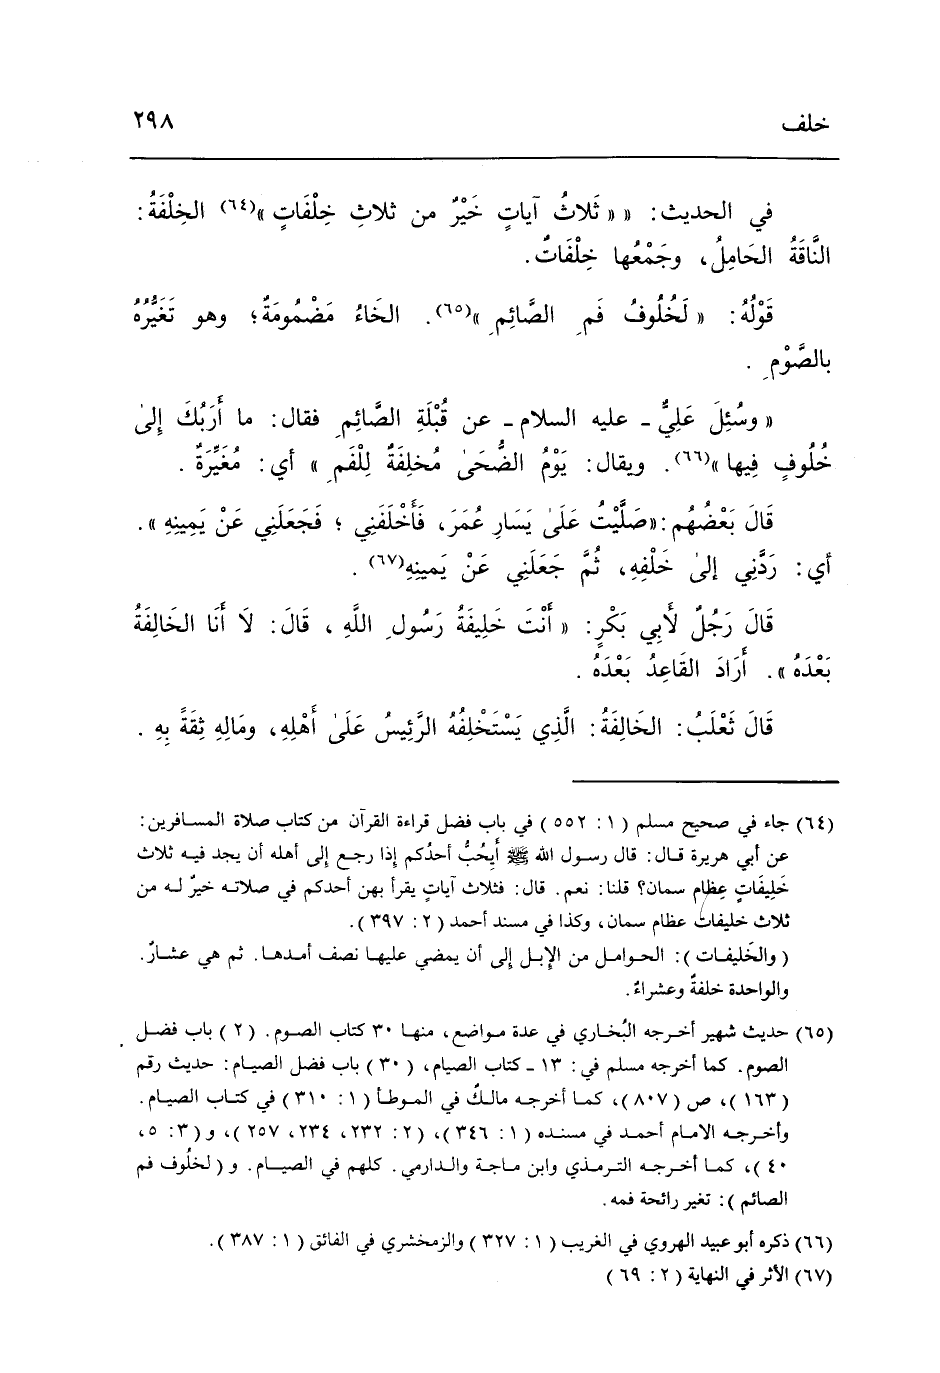 خلف ٢٩٨
في الحديث: « « ثَلاثُ آياتٍ خَيْرٌ من ثلاثِ خِلْفَاتٍ »(٦٤) الخِلْفَةُ:
النَّاقَةُ الحَامِلُ، وجَمْعُها خِلْفَاتٌ.
قَوْلُهُ: « لَخُلُوفُ فَمِ الصَّائِمِ »(٦٥). الخَاءُ مَضْمُومَةٌ؛ وهو تَغَيُّرُهُ
بالصَّوْمِ .
« وسُئِلَ عَلِيٌّ ـ عليه السلام ـ عن قُبْلَةِ الصَّائِمِ فقال: ما أَرَبُكَ إِلىٰ
خُلُوفٍ فِيها »(٦٦). ويقال: يَوْمُ الضُّحَىٰ مُخلِفَةٌ لِلْفَمِ » أي: مُغَيِّرَةٌ .
قَالَ بَعْضُهُم: «صَلَّيْتُ عَلَىٰ يَسَارِ عُمَرَ، فَأَخْلَفَنِي ؛ فَجَعَلَنِي عَنْ يَمِينِهِ ».
أي: رَدَّنِي إلىٰ خَلْفِهِ، ثُمَّ جَعَلَنِي عَنْ يَمينِهِ(٦٧) .
قَالَ رَجُلٌ لأَبِي بَكْرٍ: « أَنْتَ خَلِيفَةُ رَسُولِ اللَّهِ ، قَالَ: لَا أَنَا الخَالِفَةُ
بَعْدَهُ ». أَرَادَ القَاعِدُ بَعْدَهُ .
قَالَ ثَعْلَبُ: الخَالِفَةُ: الَّذِي يَسْتَخْلِفُهُ الرَّئِيسُ عَلَىٰ أَهْلِهِ، ومَالِهِ ثِقَةً بِهِ .
(٦٤) جاء في صحيح مسلم ( ١ : ٥٥٢ ) في باب فضل قراءة القرآن من كتاب صلاة المسافرين:
عن أبي هريرة قال: قال رسول الله ﷺ أَيِحُبُّ أحدُكم إذا رجع إلى أهله أن يجد فيه ثلاث
خَلِيفَاتٍ عِظَامٍ سمان؟ قلنا: نعم. قال: فثلاث آياتٍ يقرأ بهن أحدكم في صلاته خيرٌ له من
ثلاث خليفات عظام سمان، وكذا في مسند أحمد ( ٢ : ٣٩٧ ).
( والخَليفات ): الحوامل من الإبل إلى أن يمضي عليها نصف أمدها. ثم هي عشارٌ.
والواحدة خلفةٌ وعشراءُ.
(٦٥) حديث شهير أخرجه البُخاري في عدة مواضع، منها ٣٠ كتاب الصوم. ( ٢ ) باب فضل
الصوم. كما أخرجه مسلم في: ١٣ ـ كتاب الصيام، ( ٣٠ ) باب فضل الصيام: حديث رقم
( ١٦٣ )، ص ( ٨٠٧ )، كما أخرجه مالكٌ في الموطأ ( ١ : ٣١٠ ) في كتاب الصيام.
وأخرجه الامام أحمد في مسنده ( ١ : ٣٤٦ )، ( ٢ : ٢٣٢، ٢٣٤، ٢٥٧ )، و ( ٣ : ٥،
٤٠ )، كما أخرجه الترمذي وابن ماجة والدارمي. كلهم في الصيام. و ( لخلُوف فم
الصائم ): تغير رائحة فمه.
(٦٦) ذكره أبو عبيد الهروي في الغريب ( ١ : ٣٢٧ ) والزمخشري في الفائق ( ١ : ٣٨٧ ).
(٦٧) الأثر في النهاية ( ٢ : ٦٩ )